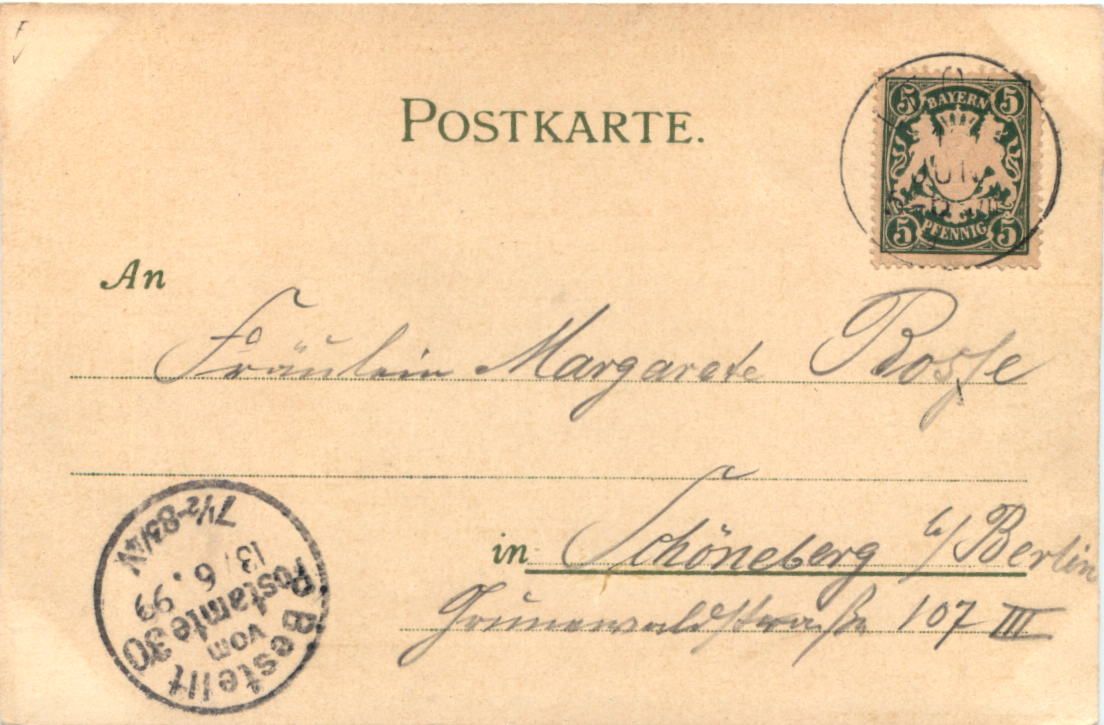 POSTKARTE.
5 BAYERN 5
JUN
5 PFENNIG 5
An
Fräulein Margarete Bosse
in Schöneberg b/Berlin
Grunewaldstraße 107 III
Bestellt
vom
Postamte 30
13/6. 99
7½-8¾N